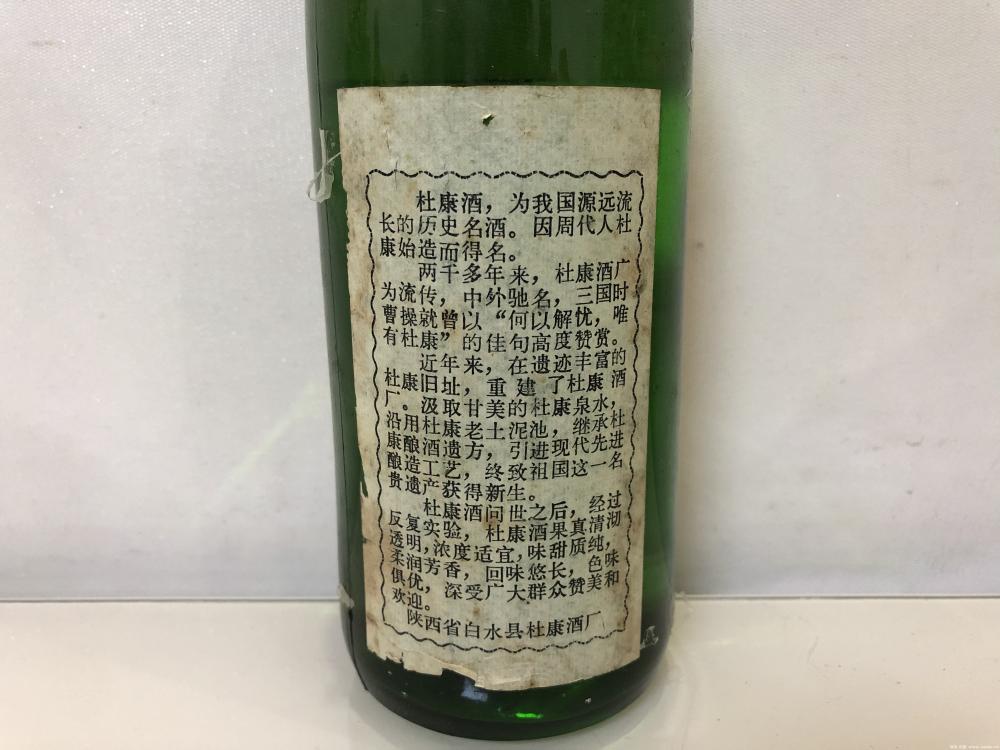 杜康酒，为我国源远流
长的历史名酒。因周代人杜
康始造而得名。
两千多年来，杜康酒广
为流传，中外驰名，三国时
曹操就曾以“何以解忧，唯
有杜康”的佳句高度赞赏。
近年来，在遗迹丰富的
杜康旧址，重建了杜康酒
厂。汲取甘美的杜康泉水，
沿用杜康老土泥池，继承杜
康酿酒遗方，引进现代先进
酿造工艺，终致祖国这一名
贵遗产获得新生。
杜康酒问世之后，经过
反复实验，杜康酒果真清沏
透明，浓度适宜，味甜质纯，
柔润芳香，回味悠长，色味
俱优，深受广大群众赞美和
欢迎。
陕西省白水县杜康酒厂